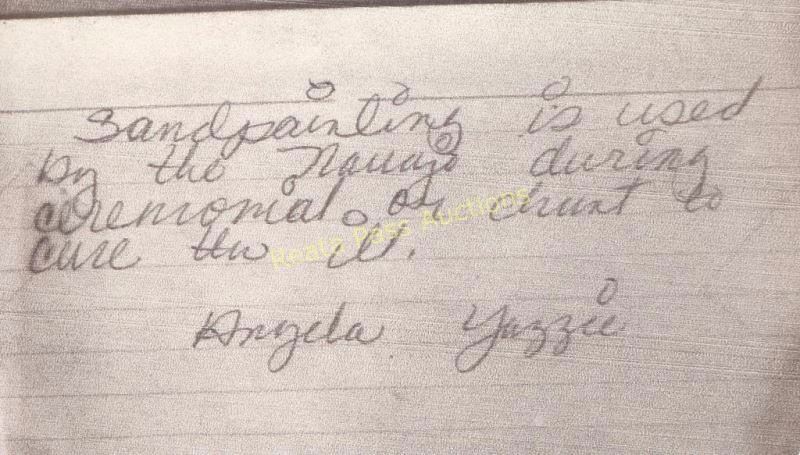 Sandpainting is used
by the Navajo during
ceremonial or chant to
cure the ill.
Reata Pass Auctions
Angela Yazzie